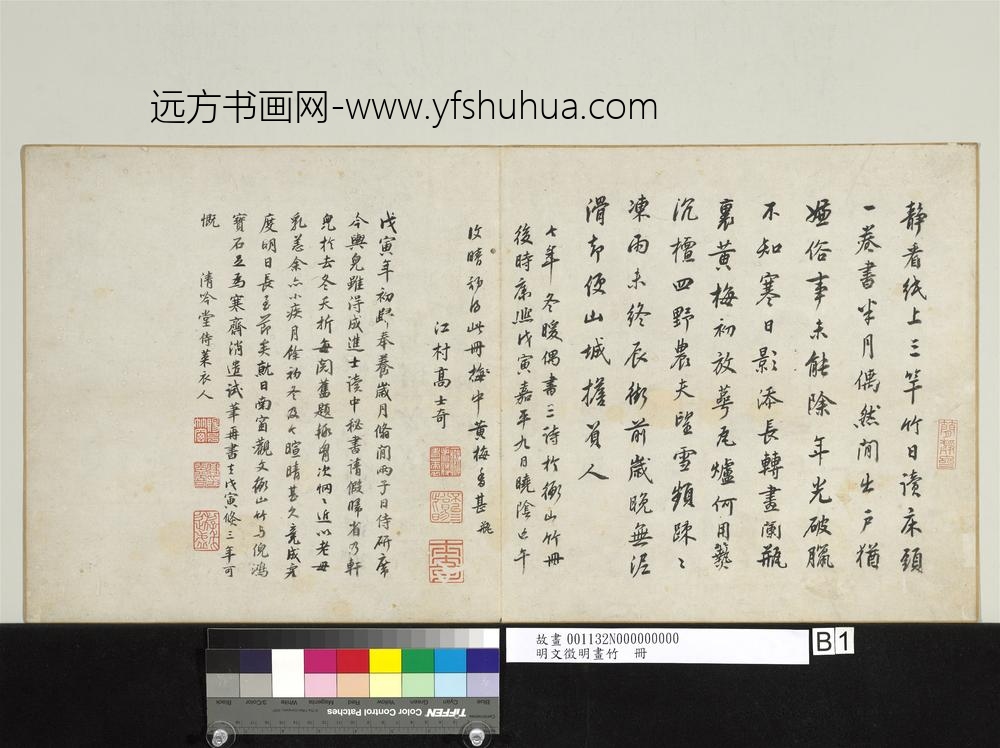 远方书画网-www.yfshuhua.com
静看纸上三竿竹日读床頭
一卷書半月偶然閒出戶猶
嫌俗事未能除年光破臘
不知寒日影添長轉畫闌瓶
裏黄梅初放萼瓦爐何用爇
沉檀四野農夫望雪頻踈〻
凍雨未終辰街前歲晚無泥
滑却便山城擔負人
七年冬暖偶書三詩於衡山竹冊
後時康熙戊寅嘉平九日曉陰亡午
後晴初得此冊梅中黄梅香甚
江村高士奇
戊寅年初歸奉養歲月脩閒兩子日侍研席
今輿兒雖得成進士讀中秘書請假歸省乃軒
兒於去冬夭折每閱舊題輒胷次惘〻近以老母
乳恙余亦小疾月餘初冬及
暄晴甚久竟成
度明日長至節矣
就日南窗觀文衡山竹与倪鴻
寶石五為寒齋消遣試筆再書去戊寅倏三年可
慨
清吟堂侍萊衣人
故畫 001132N000000000
明文徵明畫竹 冊
B 1
TIFFEN Color Control Patches
Blue Cyan Green Yellow Red Magenta White 3/Color Black